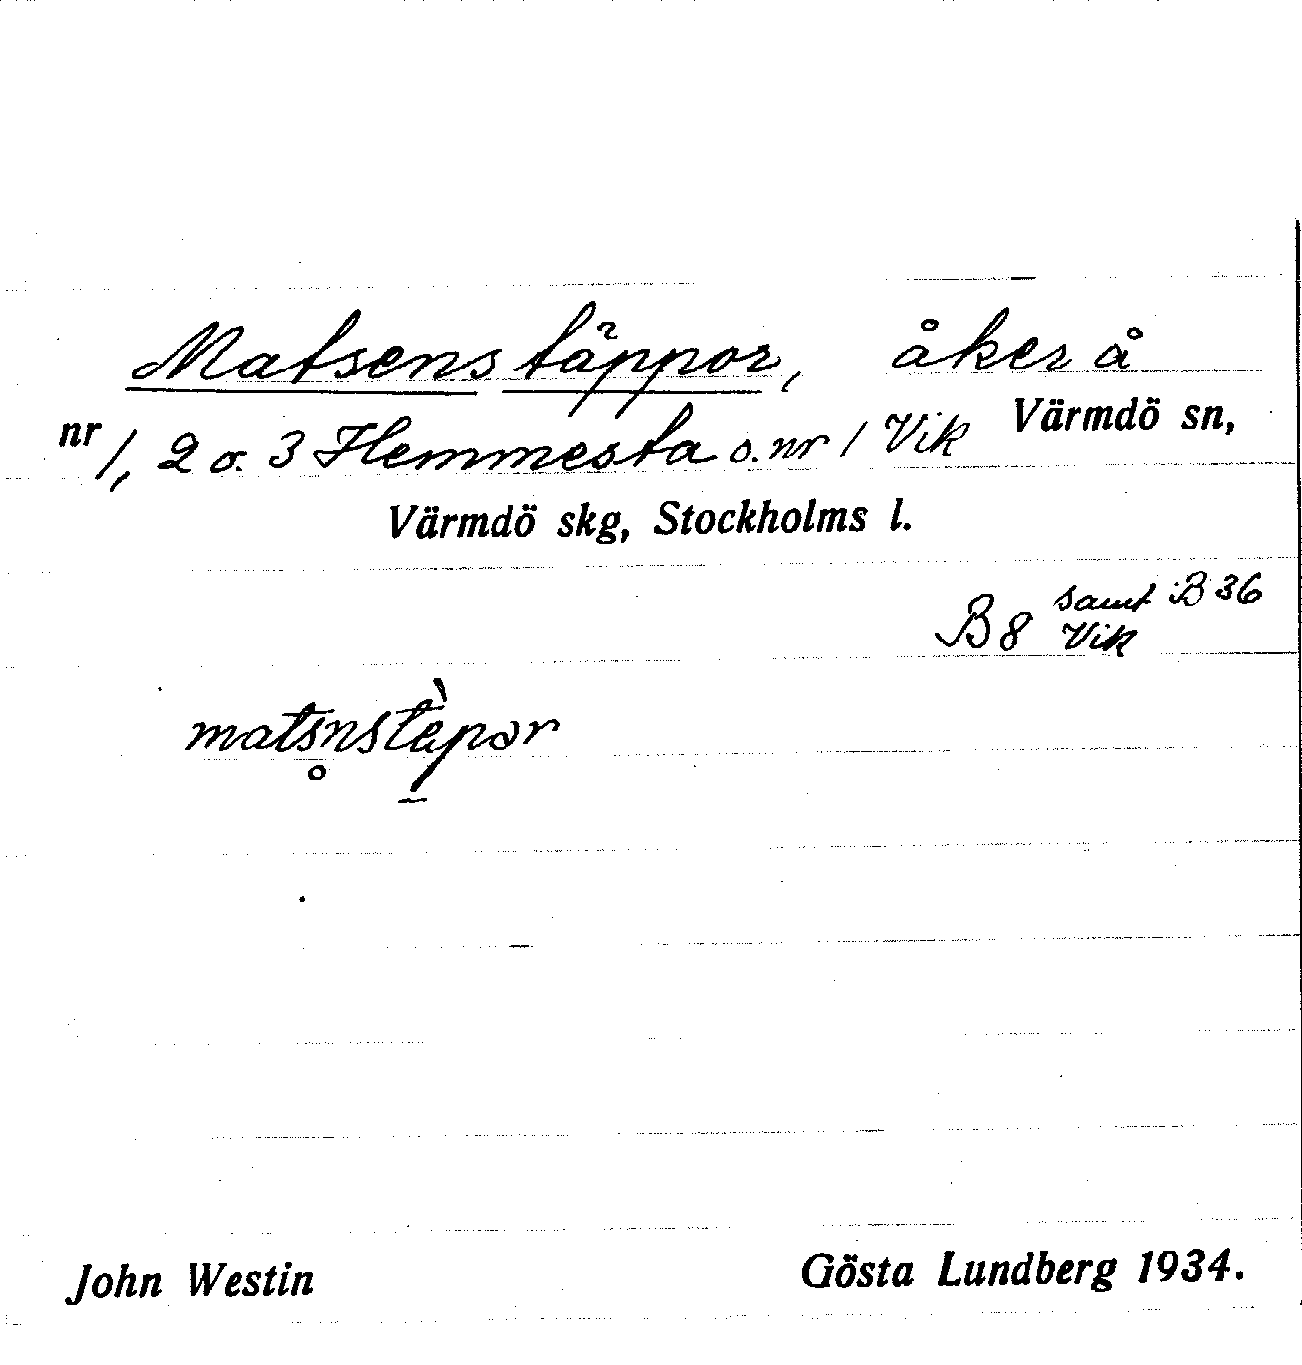 Matsens täppor, åker å
nr 1, 2 o. 3 Hemmesta o. nr 1 Vik Värmdö sn,
Värmdö skg, Stockholms l.
B 8 samt B 36
Vik
matsn̥stὲpor
John Westin Gösta Lundberg 1934.